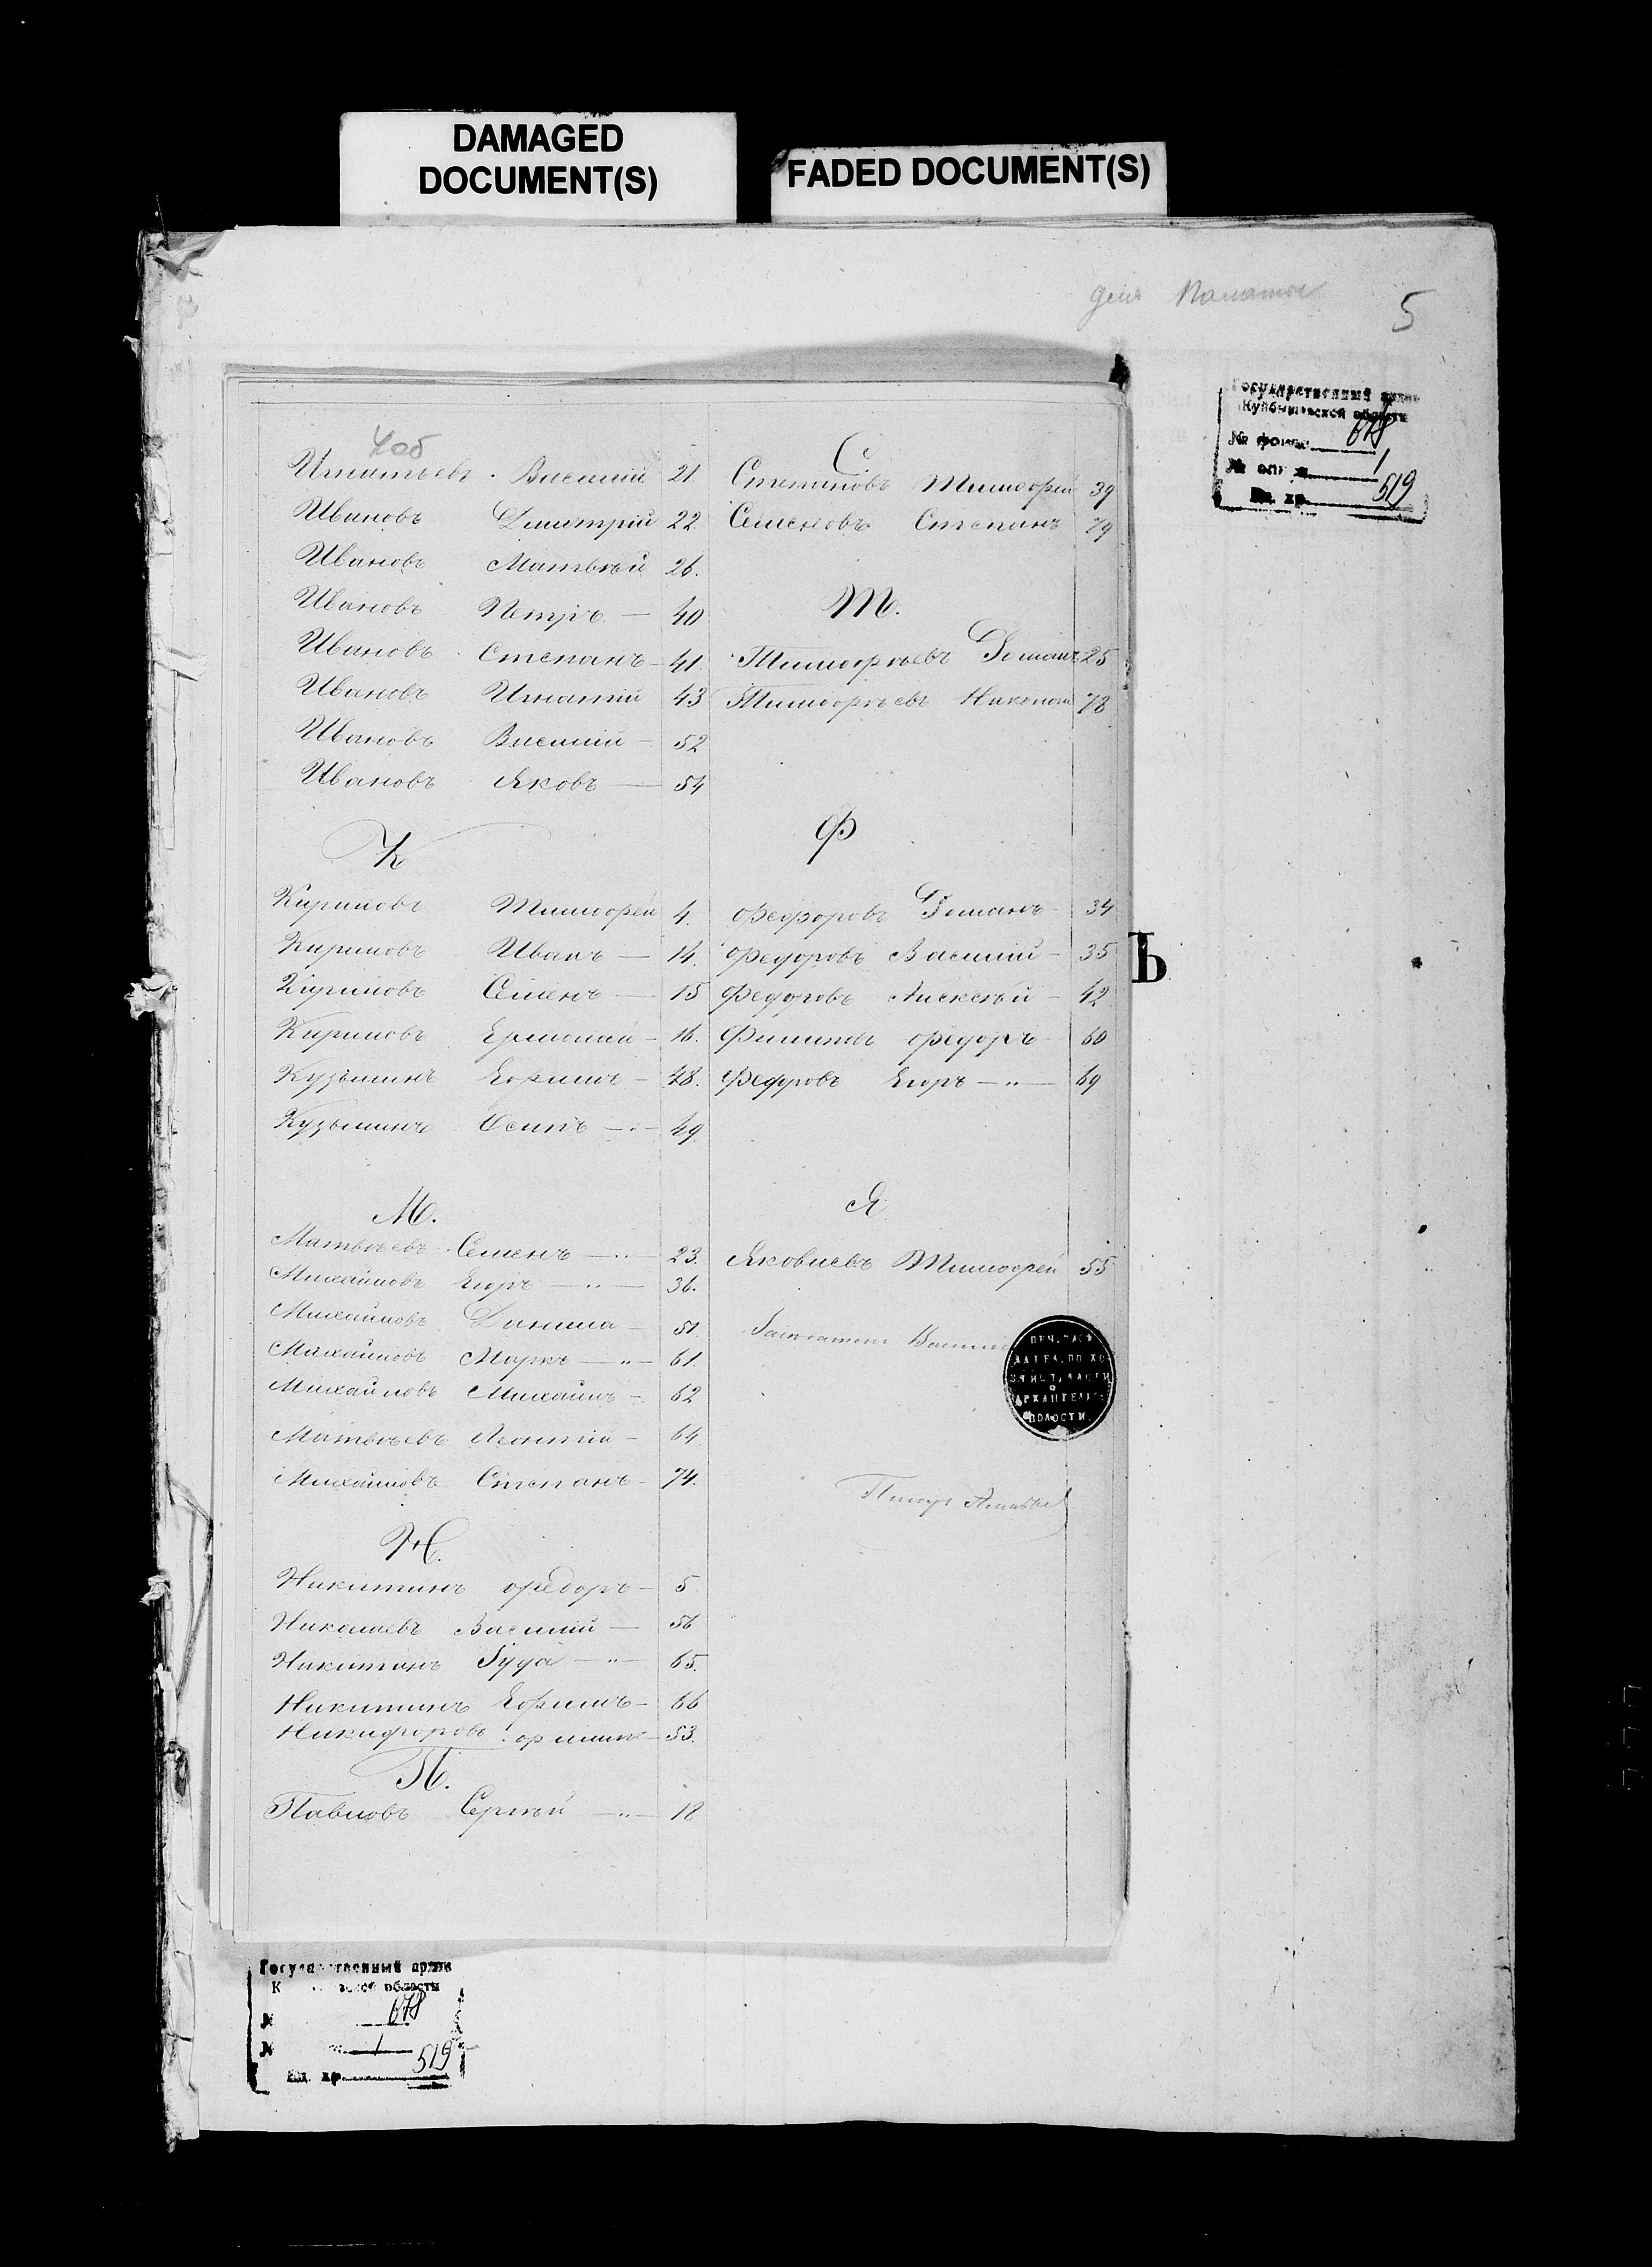 DAMAGED
DOCUMENT(S)
FADED DOCUMENT(S)
для Палаты
5
Государственный архив
Куйбышевской области
№ фонда 678
№ описи 1
Ед. хр. 519
4об
Игнатьевъ Василий 21
Ивановъ Димитрій 22
Ивановъ Матвѣй 26.
Ивановъ Петръ — 40
Ивановъ Степанъ — 41
Ивановъ Игнатій 43
Ивановъ Василий — 52
Ивановъ Яковъ — 54
К
Кириловъ Тимофей 4.
Кириловъ Иванъ — 14.
Кириловъ Семенъ — 15
Кириловъ Ермолай — 16.
Кузьминъ Ефимъ — 48.
Кузьминъ Осипъ — 49
М.
Матвѣевъ Семенъ — „ — 23.
Михайловъ Егоръ — „ — 36.
Михайловъ Данила — 51.
Михайловъ Маркъ — „ — 61.
Михайловъ Михаилъ — 62
Матвѣевъ Леонтій — 64
Михайловъ Степанъ — 74.
Н.
Никитинъ Федоръ — 5
Николаевъ Василий — 56
Никитинъ Гуда — „ — 65.
Никитинъ Ефимъ — 66
Никифоровъ Филипъ — 53.
П.
Павловъ Сергѣй — „ — 18
С
Степановъ Тимофей 39
Семеновъ Степанъ 79
Т.
Тимофѣевъ Романъ 25
Тимофѣевъ Николай 78
Ф
Федоровъ Романъ — 34
Федоровъ Василий — 35
Федоровъ Алексѣй — 42
Филиповъ Федоръ — 60
Федоровъ Егоръ — „ — 69
Я
Яковлевъ Тимофей 55
ПЕЧ. ЗАСѢ
ДАТЕЛ. ПО ХО
ЗЯЙСТ. ЧАСТИ
АРХАНГЕЛЬС
ВОЛОСТИ.
Ъ
Государственный архив
К области
№ 678
№ 1
Ед. хр. 519